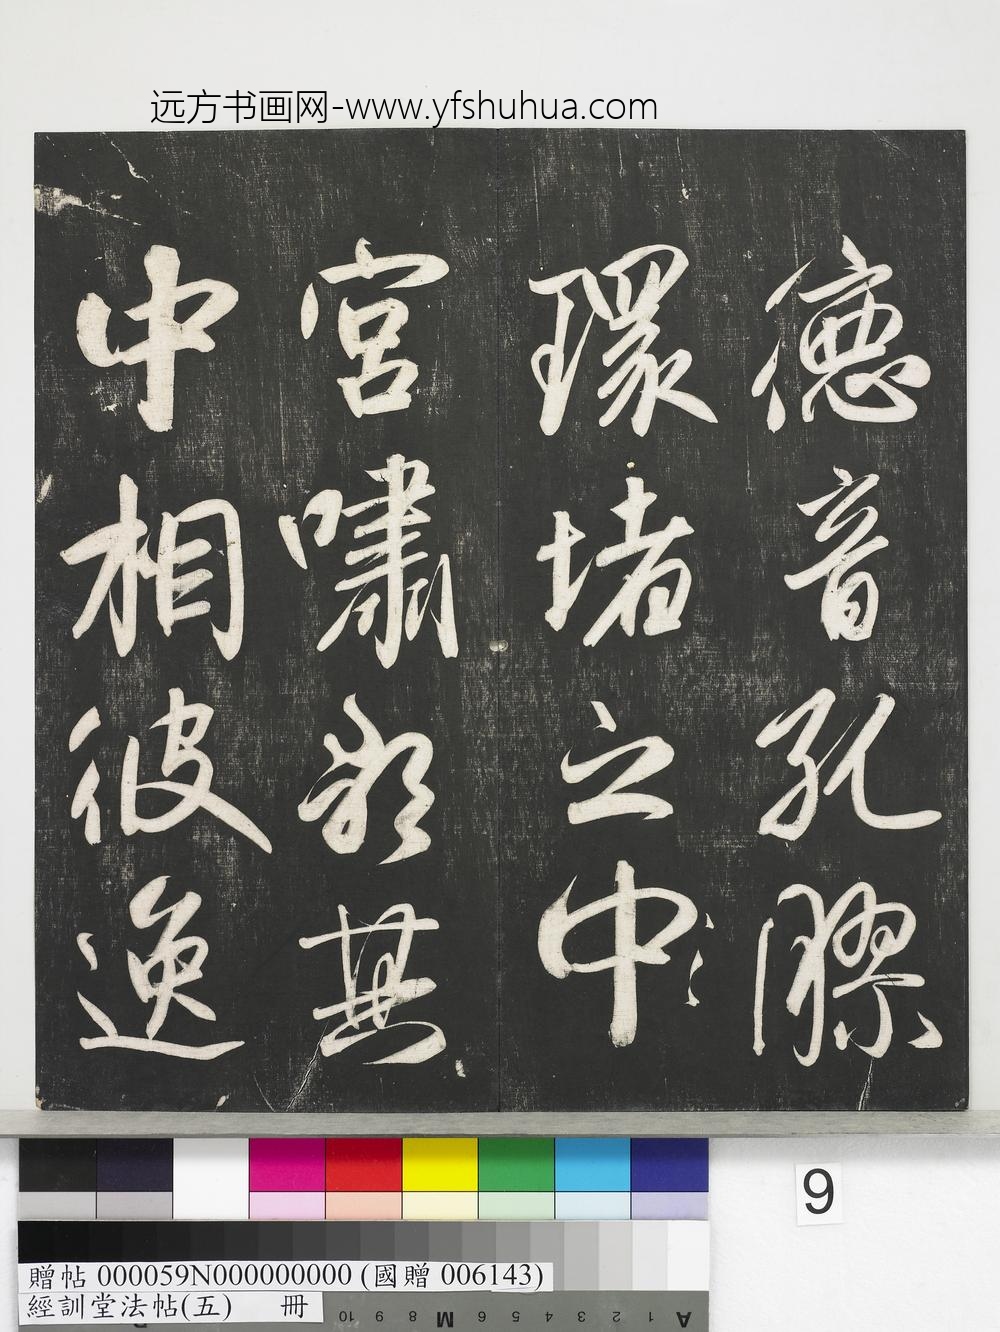 远方书画网-www.yfshuhua.com
德音孔膠
環堵之中
宮嘯歌其
中相彼逸
9
贈帖 000059N000000000 (國贈 006143)
經訓堂法帖(五) 冊
10 9 8 M 6 5 4 3 2 1 A